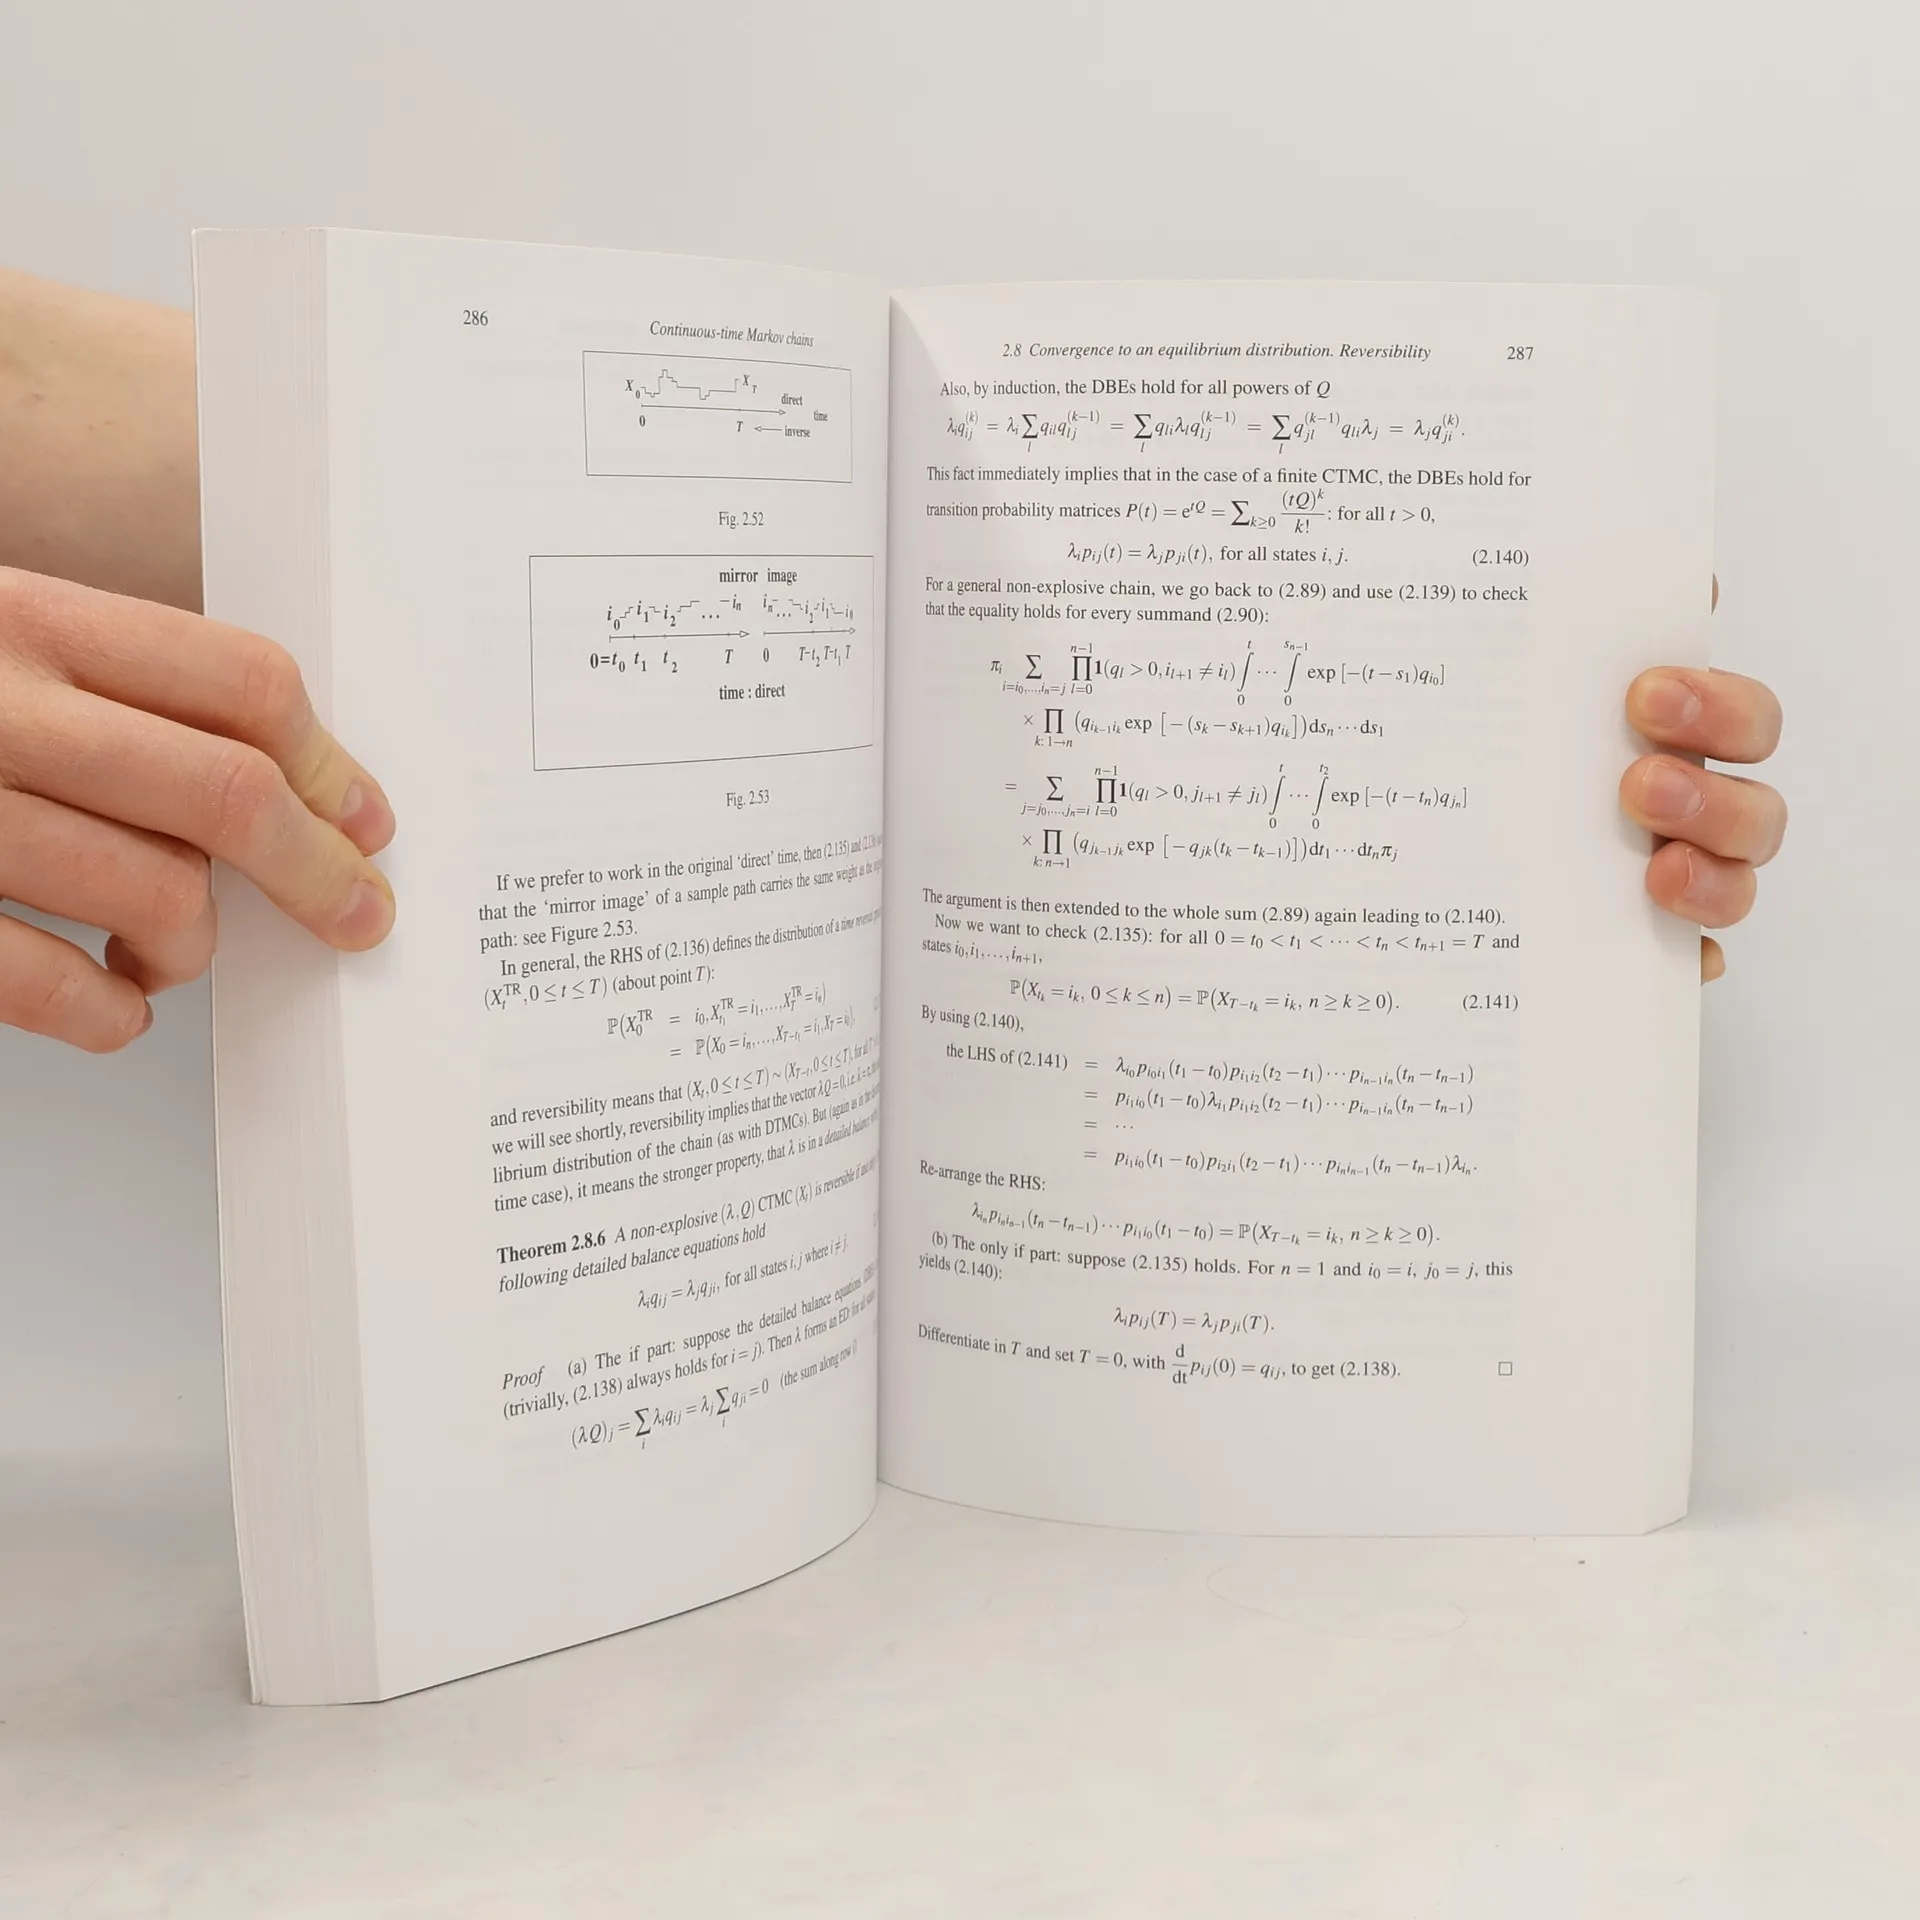 286
Continuous-time Markov chains
X₀ X_T
direct
time
0 T inverse
Fig. 2.52
mirror image
i₀ i₁ i₂ ... i_n i_n ... i₂ i₁ i₀
0=t₀ t₁ t₂ T 0 T-t₂ T-t₁ T
time : direct
Fig. 2.53
If we prefer to work in the original ‘direct’ time, then (2.135) and (2.136)
that the ‘mirror image’ of a sample path carries the same weight as the
path: see Figure 2.53.
In general, the RHS of (2.136) defines the distribution of a time reversal
(X_t^TR, 0 ≤ t ≤ T) (about point T):
ℙ(X_0^TR = i₀, X_{t₁}^TR = i₁, …, X_T^TR = i_n)
= ℙ(X₀ = i_n, …, X_{T−t₁} = i₁, X_T = i₀),
and reversibility means that (X_t, 0 ≤ t ≤ T) ~ (X_{T−t}, 0 ≤ t ≤ T), for all T
we will see shortly, reversibility implies that the vector λQ = 0, i.e. λ
librium distribution of the chain (as with DTMCs). But (again as in the
time case), it means the stronger property, that λ is in a detailed balance
Theorem 2.8.6 A non-explosive (λ, Q) CTMC (X_t) is reversible if and only
following detailed balance equations hold
λ_i q_ij = λ_j q_ji, for all states i, j where i ≠ j.
Proof (a) The if part: suppose the detailed balance equations
(trivially, (2.138) always holds for i = j). Then λ forms an ED: for all
(λQ)_j = ∑_i λ_i q_ij = λ_j ∑_i q_ji = 0 (the sum along row
2.8 Convergence to an equilibrium distribution. Reversibility 287
Also, by induction, the DBEs hold for all powers of Q
λ_i q_ij^(k) = λ_i ∑_l q_il q_lj^(k−1) = ∑_l q_li λ_l q_lj^(k−1) = ∑_l q_jl^(k−1) q_li λ_j = λ_j q_ji^(k).
This fact immediately implies that in the case of a finite CTMC, the DBEs hold for
transition probability matrices P(t) = e^{tQ} = ∑_{k≥0} (tQ)^k / k! : for all t > 0,
λ_i p_ij(t) = λ_j p_ji(t), for all states i, j. (2.140)
For a general non-explosive chain, we go back to (2.89) and use (2.139) to check
that the equality holds for every summand (2.90):
π_i ∑_{i=i₀,…,i_n=j} ∏_{l=0}^{n−1} 1(q_l > 0, i_{l+1} ≠ i_l) ∫_0^t ⋯ ∫_0^{s_{n−1}} exp [−(t − s₁)q_{i₀}]
× ∏_{k: 1→n} (q_{i_{k−1}i_k} exp [−(s_k − s_{k+1})q_{i_k}]) ds_n ⋯ ds₁
= ∑_{j=j₀,…,j_n=i} ∏_{l=0}^{n−1} 1(q_l > 0, j_{l+1} ≠ j_l) ∫_0^t ⋯ ∫_0^{t₂} exp [−(t − t_n)q_{j_n}]
× ∏_{k: n→1} (q_{j_{k−1}j_k} exp [−q_{jk}(t_k − t_{k−1})]) dt₁ ⋯ dt_n π_j
The argument is then extended to the whole sum (2.89) again leading to (2.140).
Now we want to check (2.135): for all 0 = t₀ < t₁ < ⋯ < t_n < t_{n+1} = T and
states i₀, i₁, …, i_{n+1},
ℙ(X_{t_k} = i_k, 0 ≤ k ≤ n) = ℙ(X_{T−t_k} = i_k, n ≥ k ≥ 0). (2.141)
By using (2.140),
the LHS of (2.141) = λ_{i₀} p_{i₀i₁}(t₁ − t₀) p_{i₁i₂}(t₂ − t₁) ⋯ p_{i_{n−1}i_n}(t_n − t_{n−1})
= p_{i₁i₀}(t₁ − t₀) λ_{i₁} p_{i₁i₂}(t₂ − t₁) ⋯ p_{i_{n−1}i_n}(t_n − t_{n−1})
= ⋯
= p_{i₁i₀}(t₁ − t₀) p_{i₂i₁}(t₂ − t₁) ⋯ p_{i_n i_{n−1}}(t_n − t_{n−1}) λ_{i_n}.
Re-arrange the RHS:
λ_{i_n} p_{i_n i_{n−1}}(t_n − t_{n−1}) ⋯ p_{i₁i₀}(t₁ − t₀) = ℙ(X_{T−t_k} = i_k, n ≥ k ≥ 0).
(b) The only if part: suppose (2.135) holds. For n = 1 and i₀ = i, j₀ = j, this
yields (2.140):
λ_i p_ij(T) = λ_j p_ji(T).
Differentiate in T and set T = 0, with d/dt p_ij(0) = q_ij, to get (2.138). □